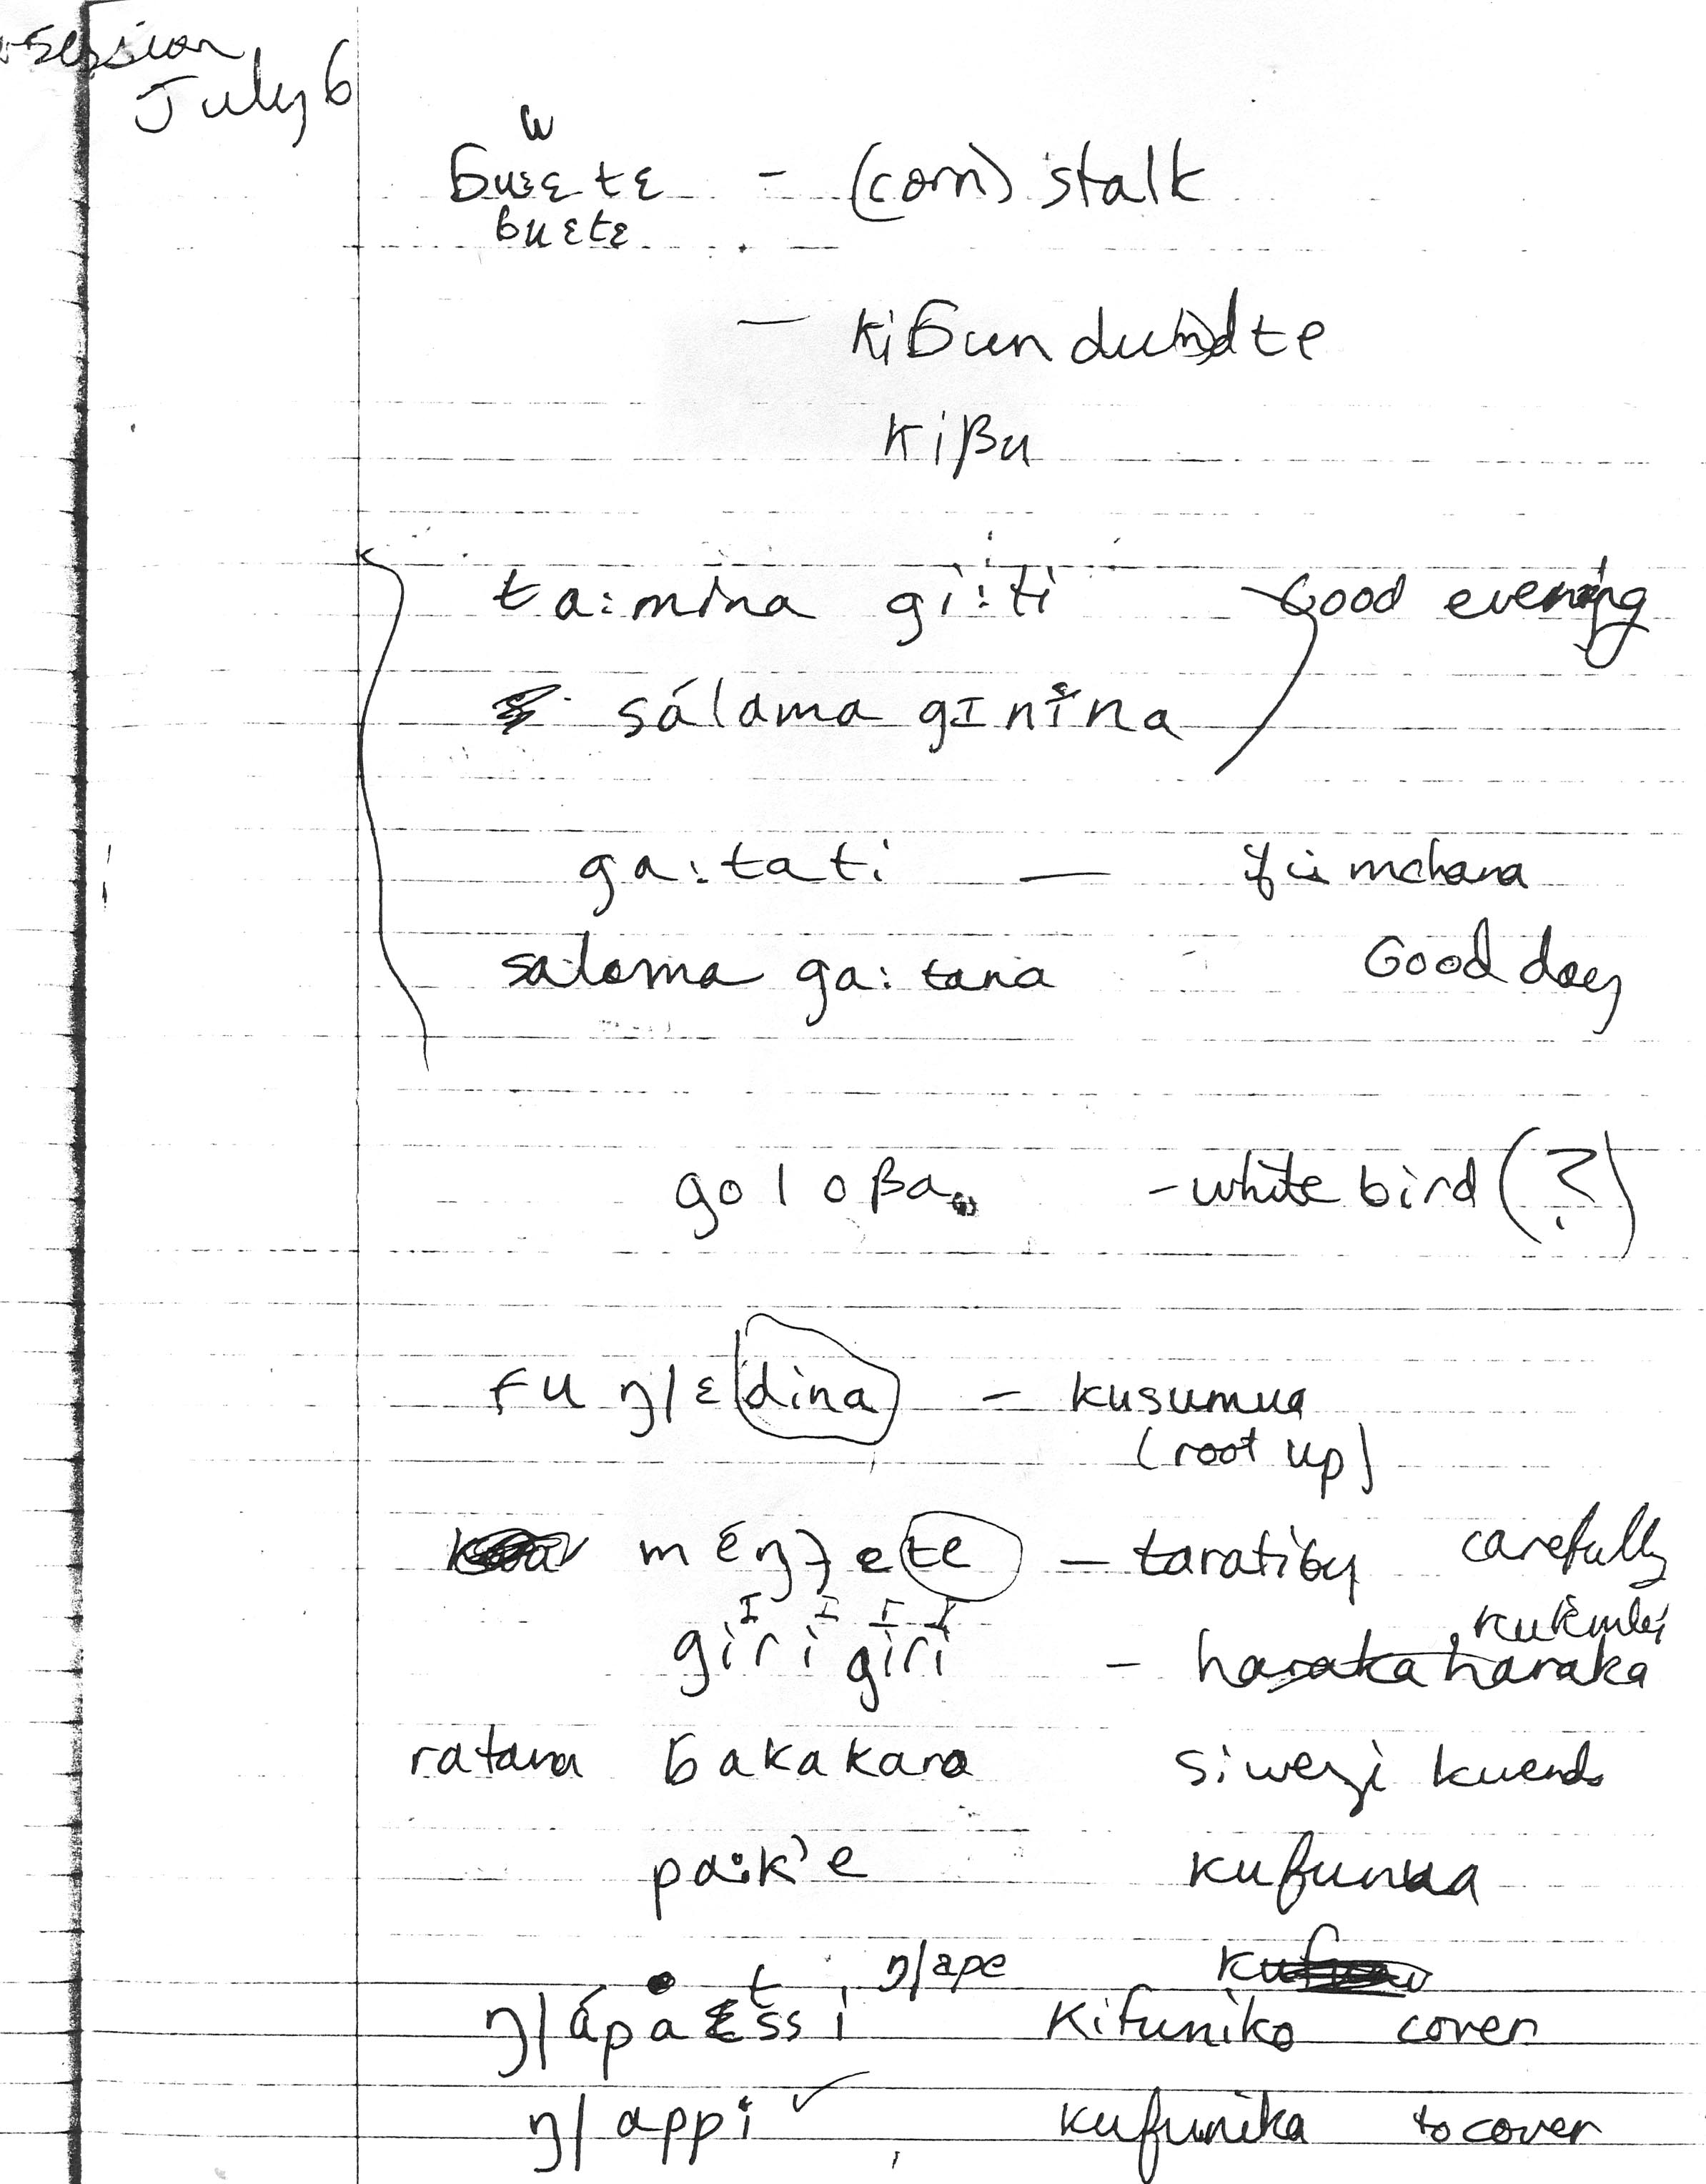 session
July 6
w
ɓuɛtɛ - (corn) stalk
ɓuɛtɛ
- kiɓundu
kiβu
ta:mina gi:ti Good evening
sálama gɪnina
ga:tati — mchana
salama ga:tana Good day
goloβa - white bird (?)
fuŋ|ɛdina - kusumua
(root up)
mɛŋʒete - taratiby carefully
ɪ ɪ ɪ ɪ
girigiri - haraka haraka
ratana ɓakakara siwezi kuenda
pa:k'e kufunua
ŋ|ape
ŋ|ápa kifuniko cover
ŋ|appi ✓ kufunika to cover